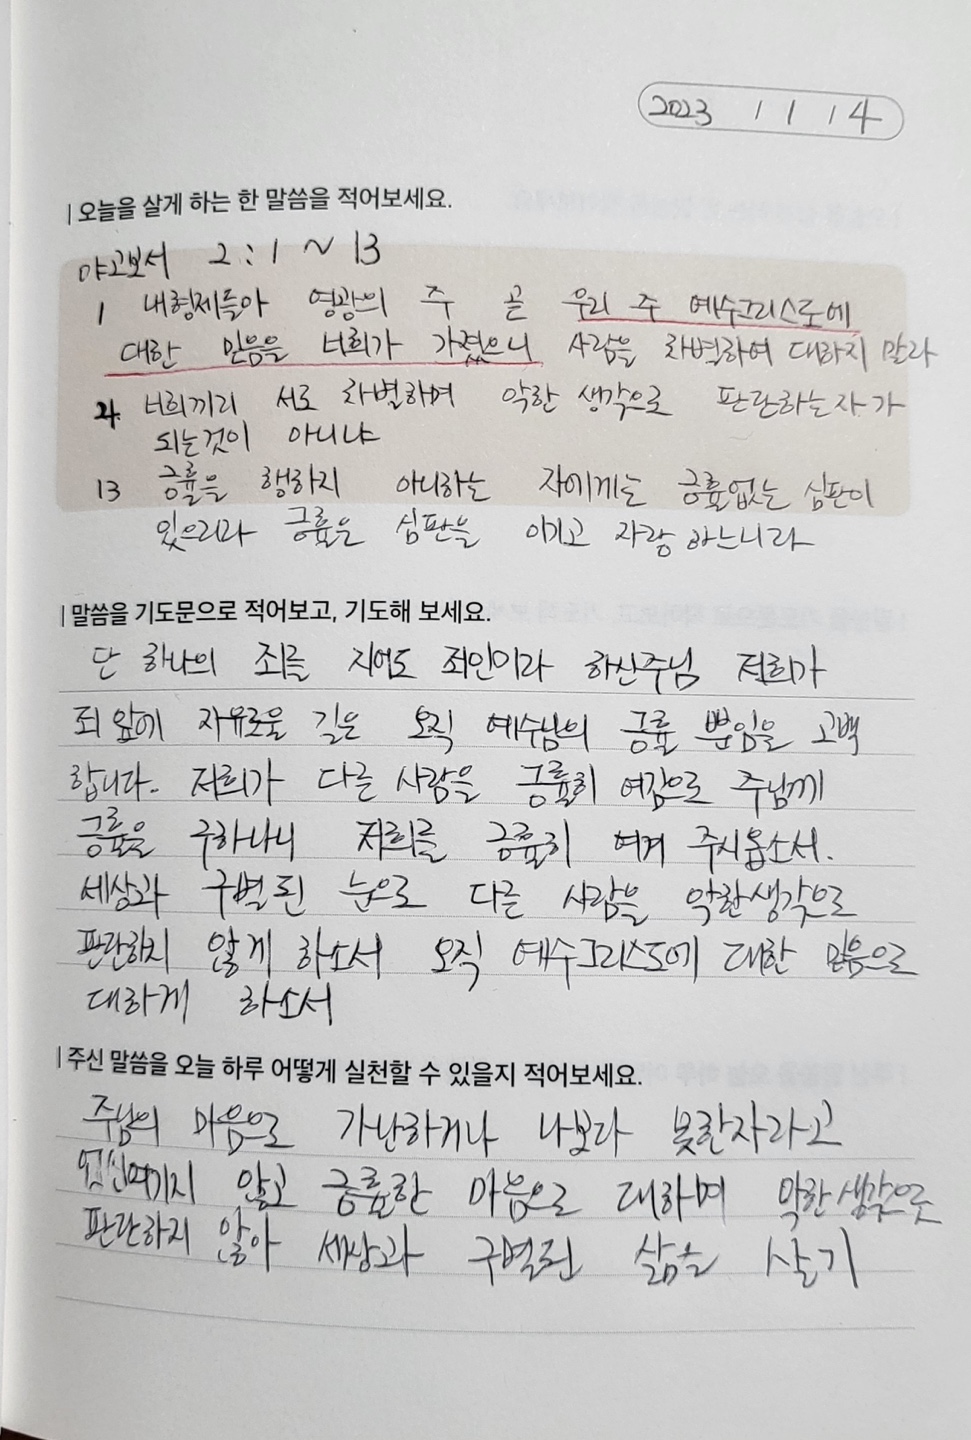 2023 11 14
오늘을 살게 하는 한 말씀을 적어보세요.
야고보서 2:1 ~ 13
1 내형제들아 영광의 주 곧 우리 주 예수그리스도에
대한 믿음을 너희가 가졌으니 사람을 차별하여 대하지 말라
4 너희끼리 서로 차별하며 악한 생각으로 판단하는자가
되는것이 아니냐
13 긍휼을 행하지 아니하는 자에게는 긍휼없는 심판이
있으리라 긍휼은 심판을 이기고 자랑하느니라
말씀을 기도문으로 적어보고, 기도해 보세요.
단 하나의 죄를 지어도 죄인이라 하신주님 저희가
죄 앞에 자유로울 길은 오직 예수님의 긍휼 뿐임을 고백
합니다. 저희가 다른 사람을 긍휼히 여김으로 주님께
긍휼을 구하나니 저희를 긍휼히 여겨 주시옵소서.
세상과 구별된 눈으로 다른 사람을 악한생각으로
판단하지 않게 하소서 오직 예수그리스도에 대한 믿음으로
대하게 하소서
주신 말씀을 오늘 하루 어떻게 실천할 수 있을지 적어보세요.
주님의 마음으로 가난하거나 나보다 못한자라고
업신여기지 않고 긍휼한 마음으로 대하며 악한생각으로
판단하지 않아 세상과 구별된 삶을 살기